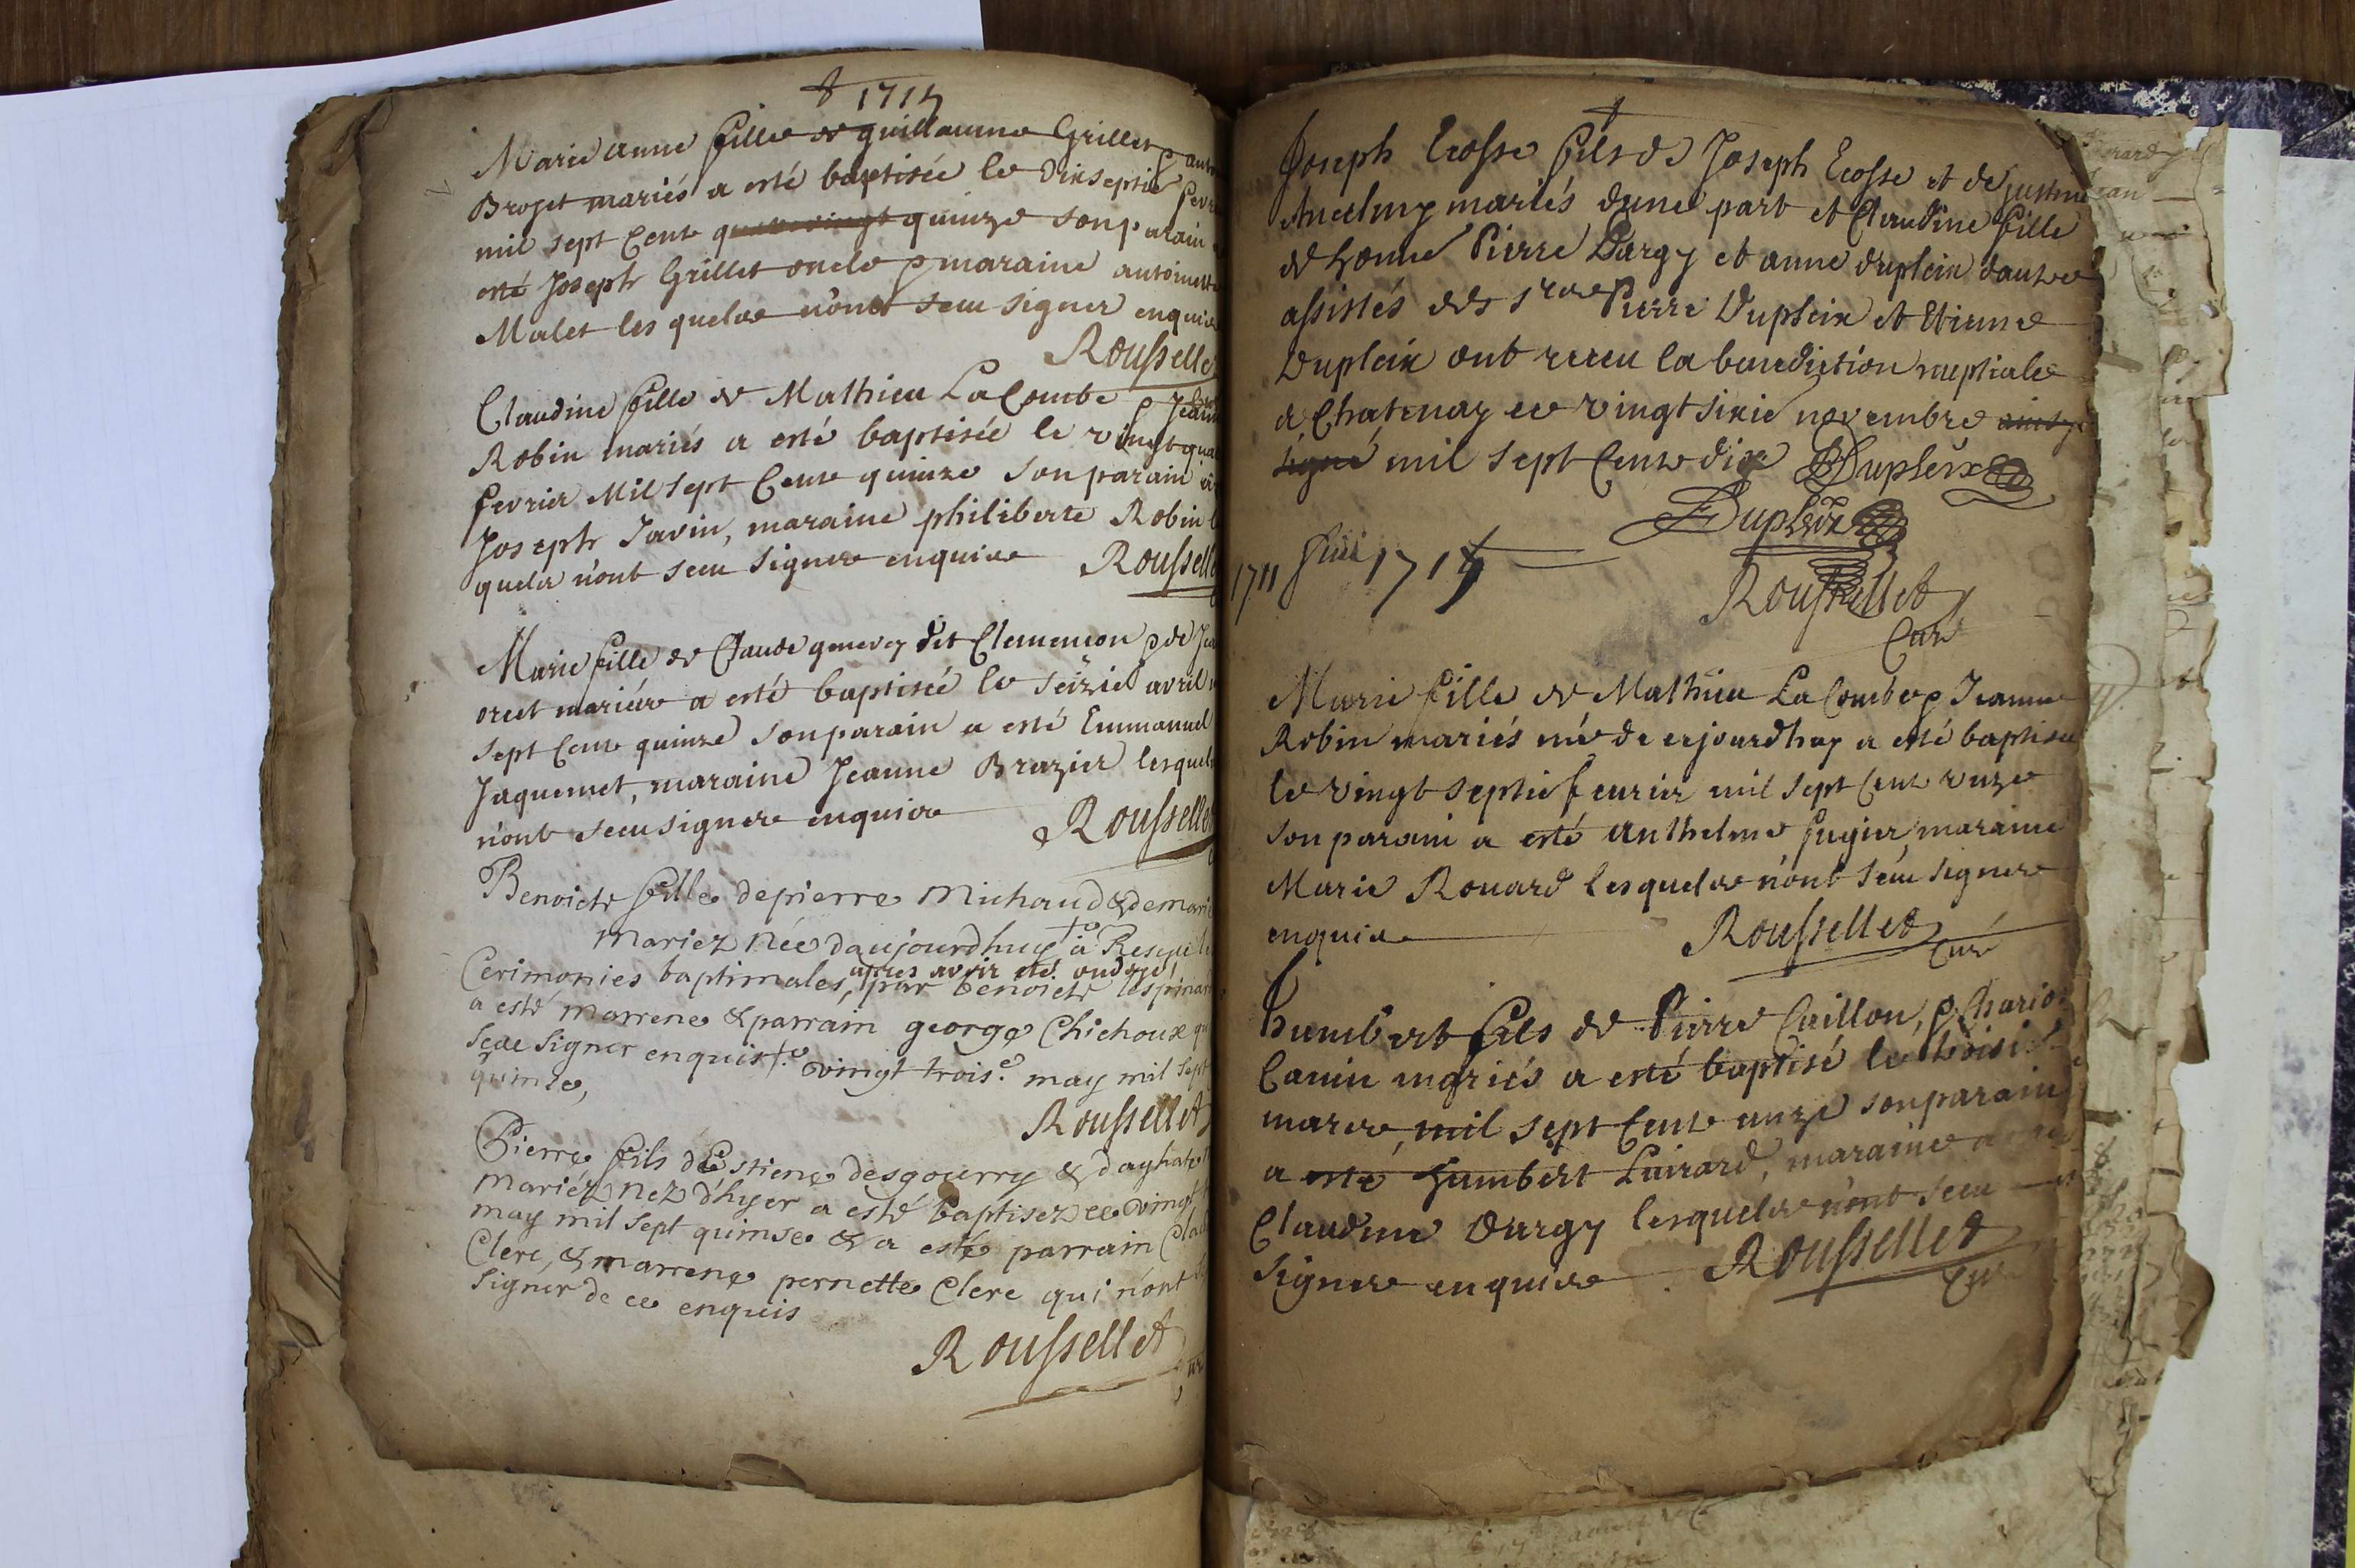 1715
Marie anne fille de guillaume Grillet & anto
Brojet mariés a esté baptisée le dixseptie fevri
mil sept Cent quinze son parain
esté Joseph Grillet oncle & maraine antoinette
Malet les quels n'ont sceu signer enquis
Roussellet
Claudine fille de Mathieu LaCombe & Jeanne
Robin mariés a esté baptisée le vingt qua
fevrier Mil sept Cent quinze son parain a
Joseph Javin, maraine philiberte Robin les
quels n'ont sceu signer enquis Roussellet
Marie fille de Claude genevey dit Clemencon & de Jea
oret mariés a esté baptisée le seizie avril
sept Cent quinze son parain a esté Emmanuel
Jaquemet, maraine Jeanne Brazier lesquels
n'ont sceu signer enquis Roussellet
Benoicte fille de pierre Michaud & de marie
mariez Née d'aujourdhuy +o a Resçeu le
Cerimonies baptimales, apres avoir eté ondoyé, par benoicte lespina
a esté marrene & parrain george Chichoux qu
sçeu signer enquis +o vingt trois.e may mil sept
quinse,
Roussellet
Pierre fils d'Estiene desgourry & d'aghate
mariéz Nez d'hyer a esté baptisez ce vingt
may mil sept quinse & a esté parrain Cla
Clerc, & marrene pernette Clerc qui n'ont
signer de ce enquis
Roussellet
Joseph Ecosse fils de Joseph Ecosse et de Justine
Ancelmy mariés d'une part et Claudine fille
de honne Pierre Dargy et anne dupleix dautre
assistés des srs Pierre Dupleix et Etienne
Dupleix ont receu la benediction nuptiale
a Chatenay ce vingt sixie novembre ainsy
signé mil sept Cent dix Dupleix
Dupleix
1711 1715
Roussellet
Curé
Marie fille de Mathieu LaCombe & Jeanne
Robin mariés née de cejourdhuy a esté baptisée
le vingt septie feurier mil sept Cent unze
son parain a esté Anthelme fugier, maraine
Marie Rouard lesquels n'ont sceu signer
enquis Roussellet
Curé
humbert fils de Pierre Caillon, &
Canin mariés a esté baptisé le troisi
mars, mil sept Cent unze son parain
a esté humbert Lairard, maraine a
Claudine Dargy lesquels n'ont sceu
signer enquis Roussellet
Curé